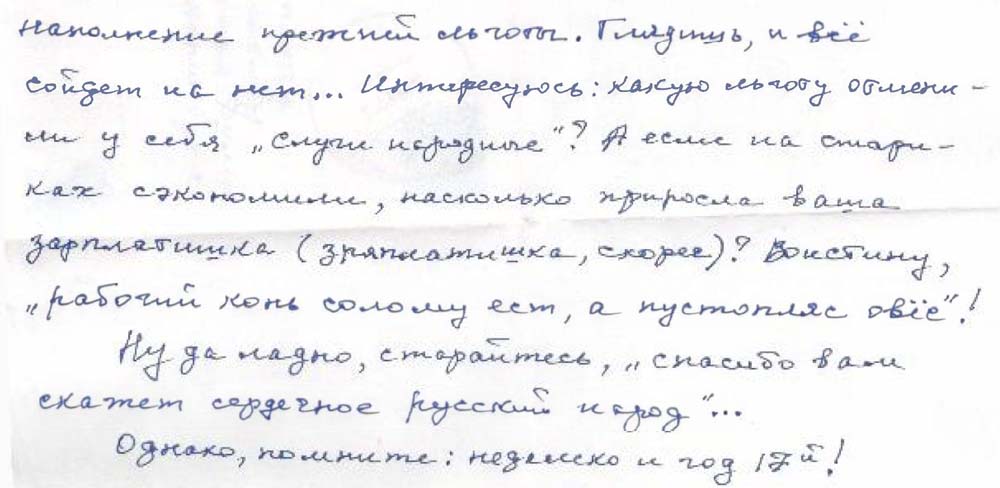 наполнение прежней льготы. Глядишь, и всё
сойдет на нет... Интересуюсь: какую льготу отмени-
ли у себя „слуги народные"? А если на стари-
ках сэкономили, насколько приросла ваша
зарплатишка (зряплатишка, скорее)? Воистину,
„рабочий конь солому ест, а пустопляс овёс"!
Ну да ладно, старайтесь, „спасибо вам
скажет сердечное русский народ"...
Однако, помните: недалеко и год 17й!